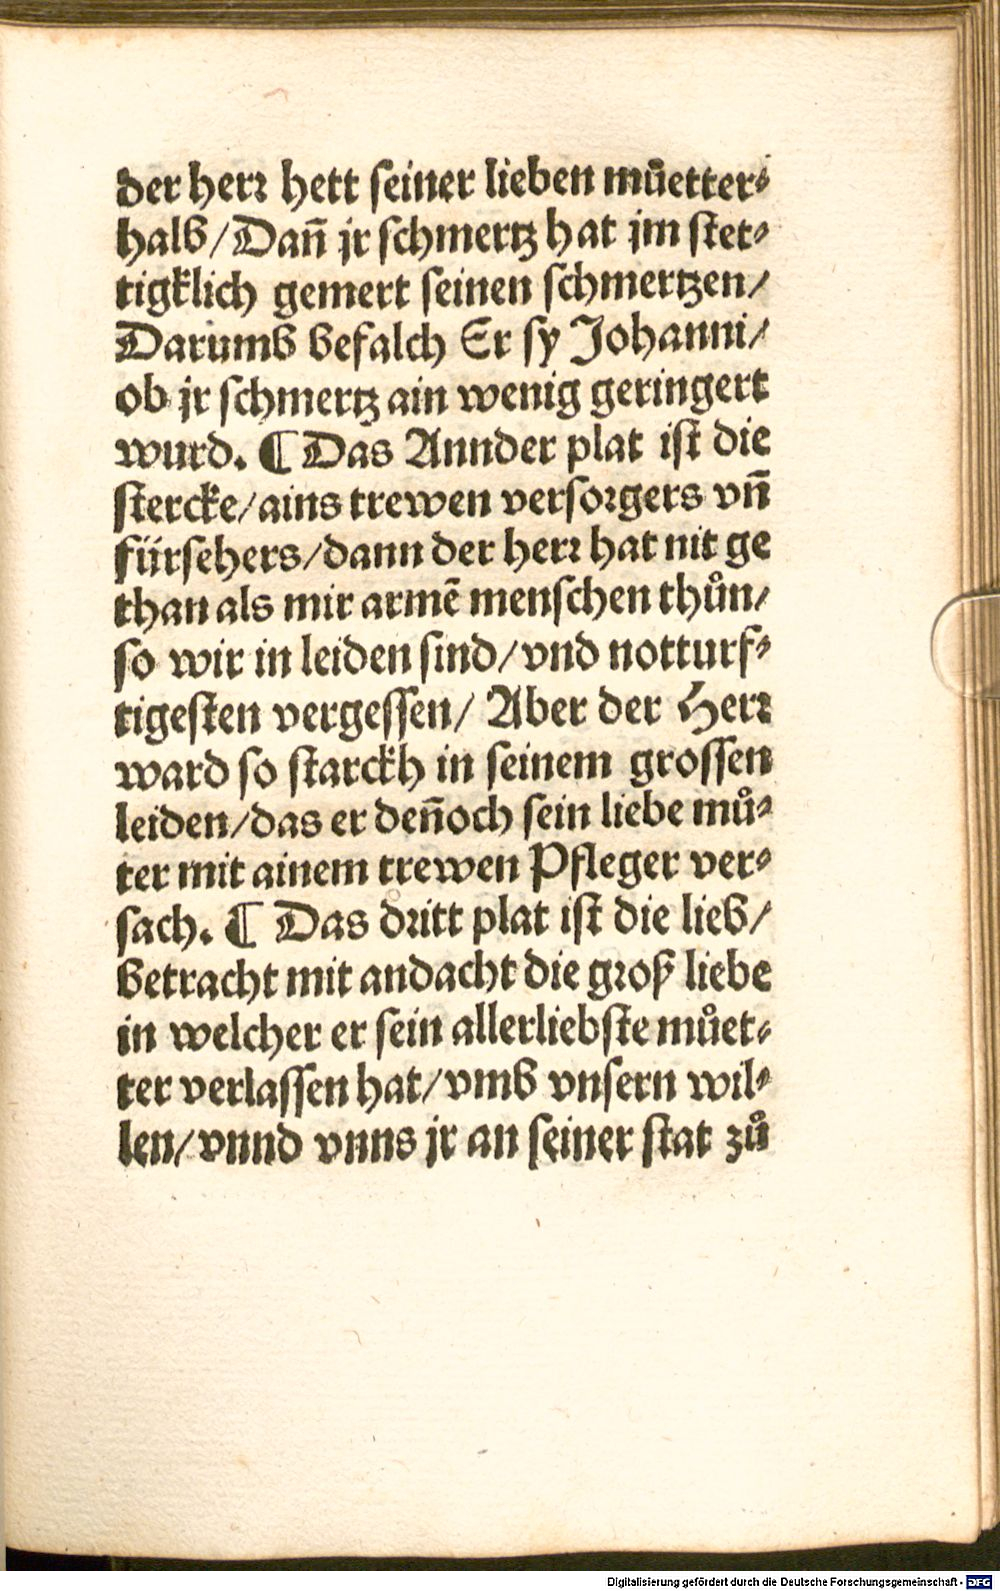 der herꝛ hett seiner lieben můetter⸗
halb/Dañ jr schmertz hat jm stet⸗
tigklich gemert seinen schmertzen/
Darumb befalch Er sy Johanni/
ob jr schmertz ain wenig geringert
wurd. ¶ Das Annder plat ist die
stercke/ains trewen versoꝛgers vñ
fürsehers/dann der herꝛ hat nit ge
than als mir armẽ menschen thůn/
so wir in leiden sind/vnd notturf⸗
tigesten vergessen/ Aber der Herꝛ
ward so starckh in seinem grossen
leiden/das er deñoch sein liebe mů⸗
ter mit ainem trewen Pfleger ver⸗
sach. ¶ Das dꝛitt plat ist die lieb/
betracht mit andacht die gꝛoß liebe
in welcher er sein allerliebste můet⸗
ter verlassen hat/vmb vnsern wil⸗
len/vnnd vnns jr an seiner stat zů
Digitalisierung gefördert durch die Deutsche Forschungsgemeinschaft - DFG